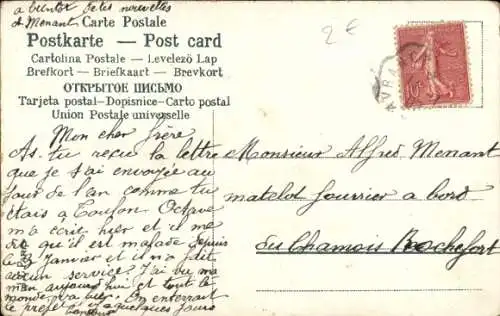 a bientôt de tes nouvelles
A Menant
Carte Postale
Postkarte — Post card
Cartolina Postale — Levelező Lap
Brefkort — Briefkaart — Brevkort
ОТКРЫТОЕ ПИСЬМО
Tarjeta postal-Dopisnice-Carto postal
Union Postale universelle
2€
Mon cher frère
As-tu reçu la lettre
que je t'ai envoyée au
Jour de l'an comme tu
étais à Toulon Octave
m'a écrit hier et il me
dit qu'il est malade depuis
le 3 Janvier et il n'a fait
aucun service J'ai vu ma
man aujourd'hui et tout le
monde va bien. On enterrait
le préfet il y a quelques jours
Monsieur Alfred Menant
matelot fourrier a bord
du Chamois Rochefort